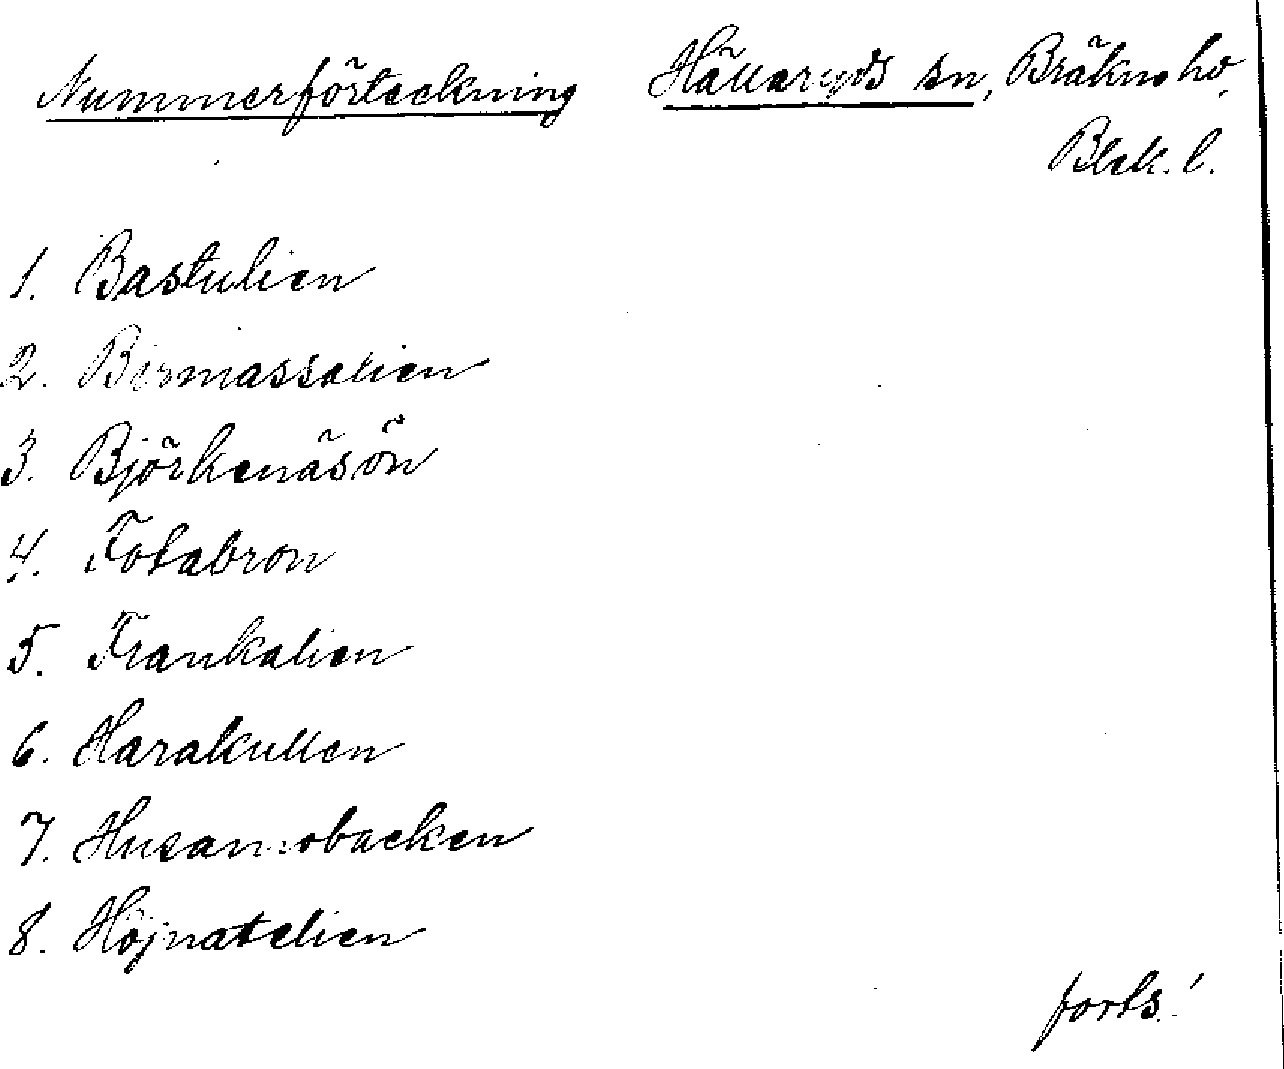 Nummerförteckning Hällaryds sn, Bräkne hd.
Blek. l.
1. Bastulien
2. Bermassalien
3. Björkenäsön
4. Fotabron
5. Frankalien
6. Harakullen
7.
8. Höjnatelien
forts.!